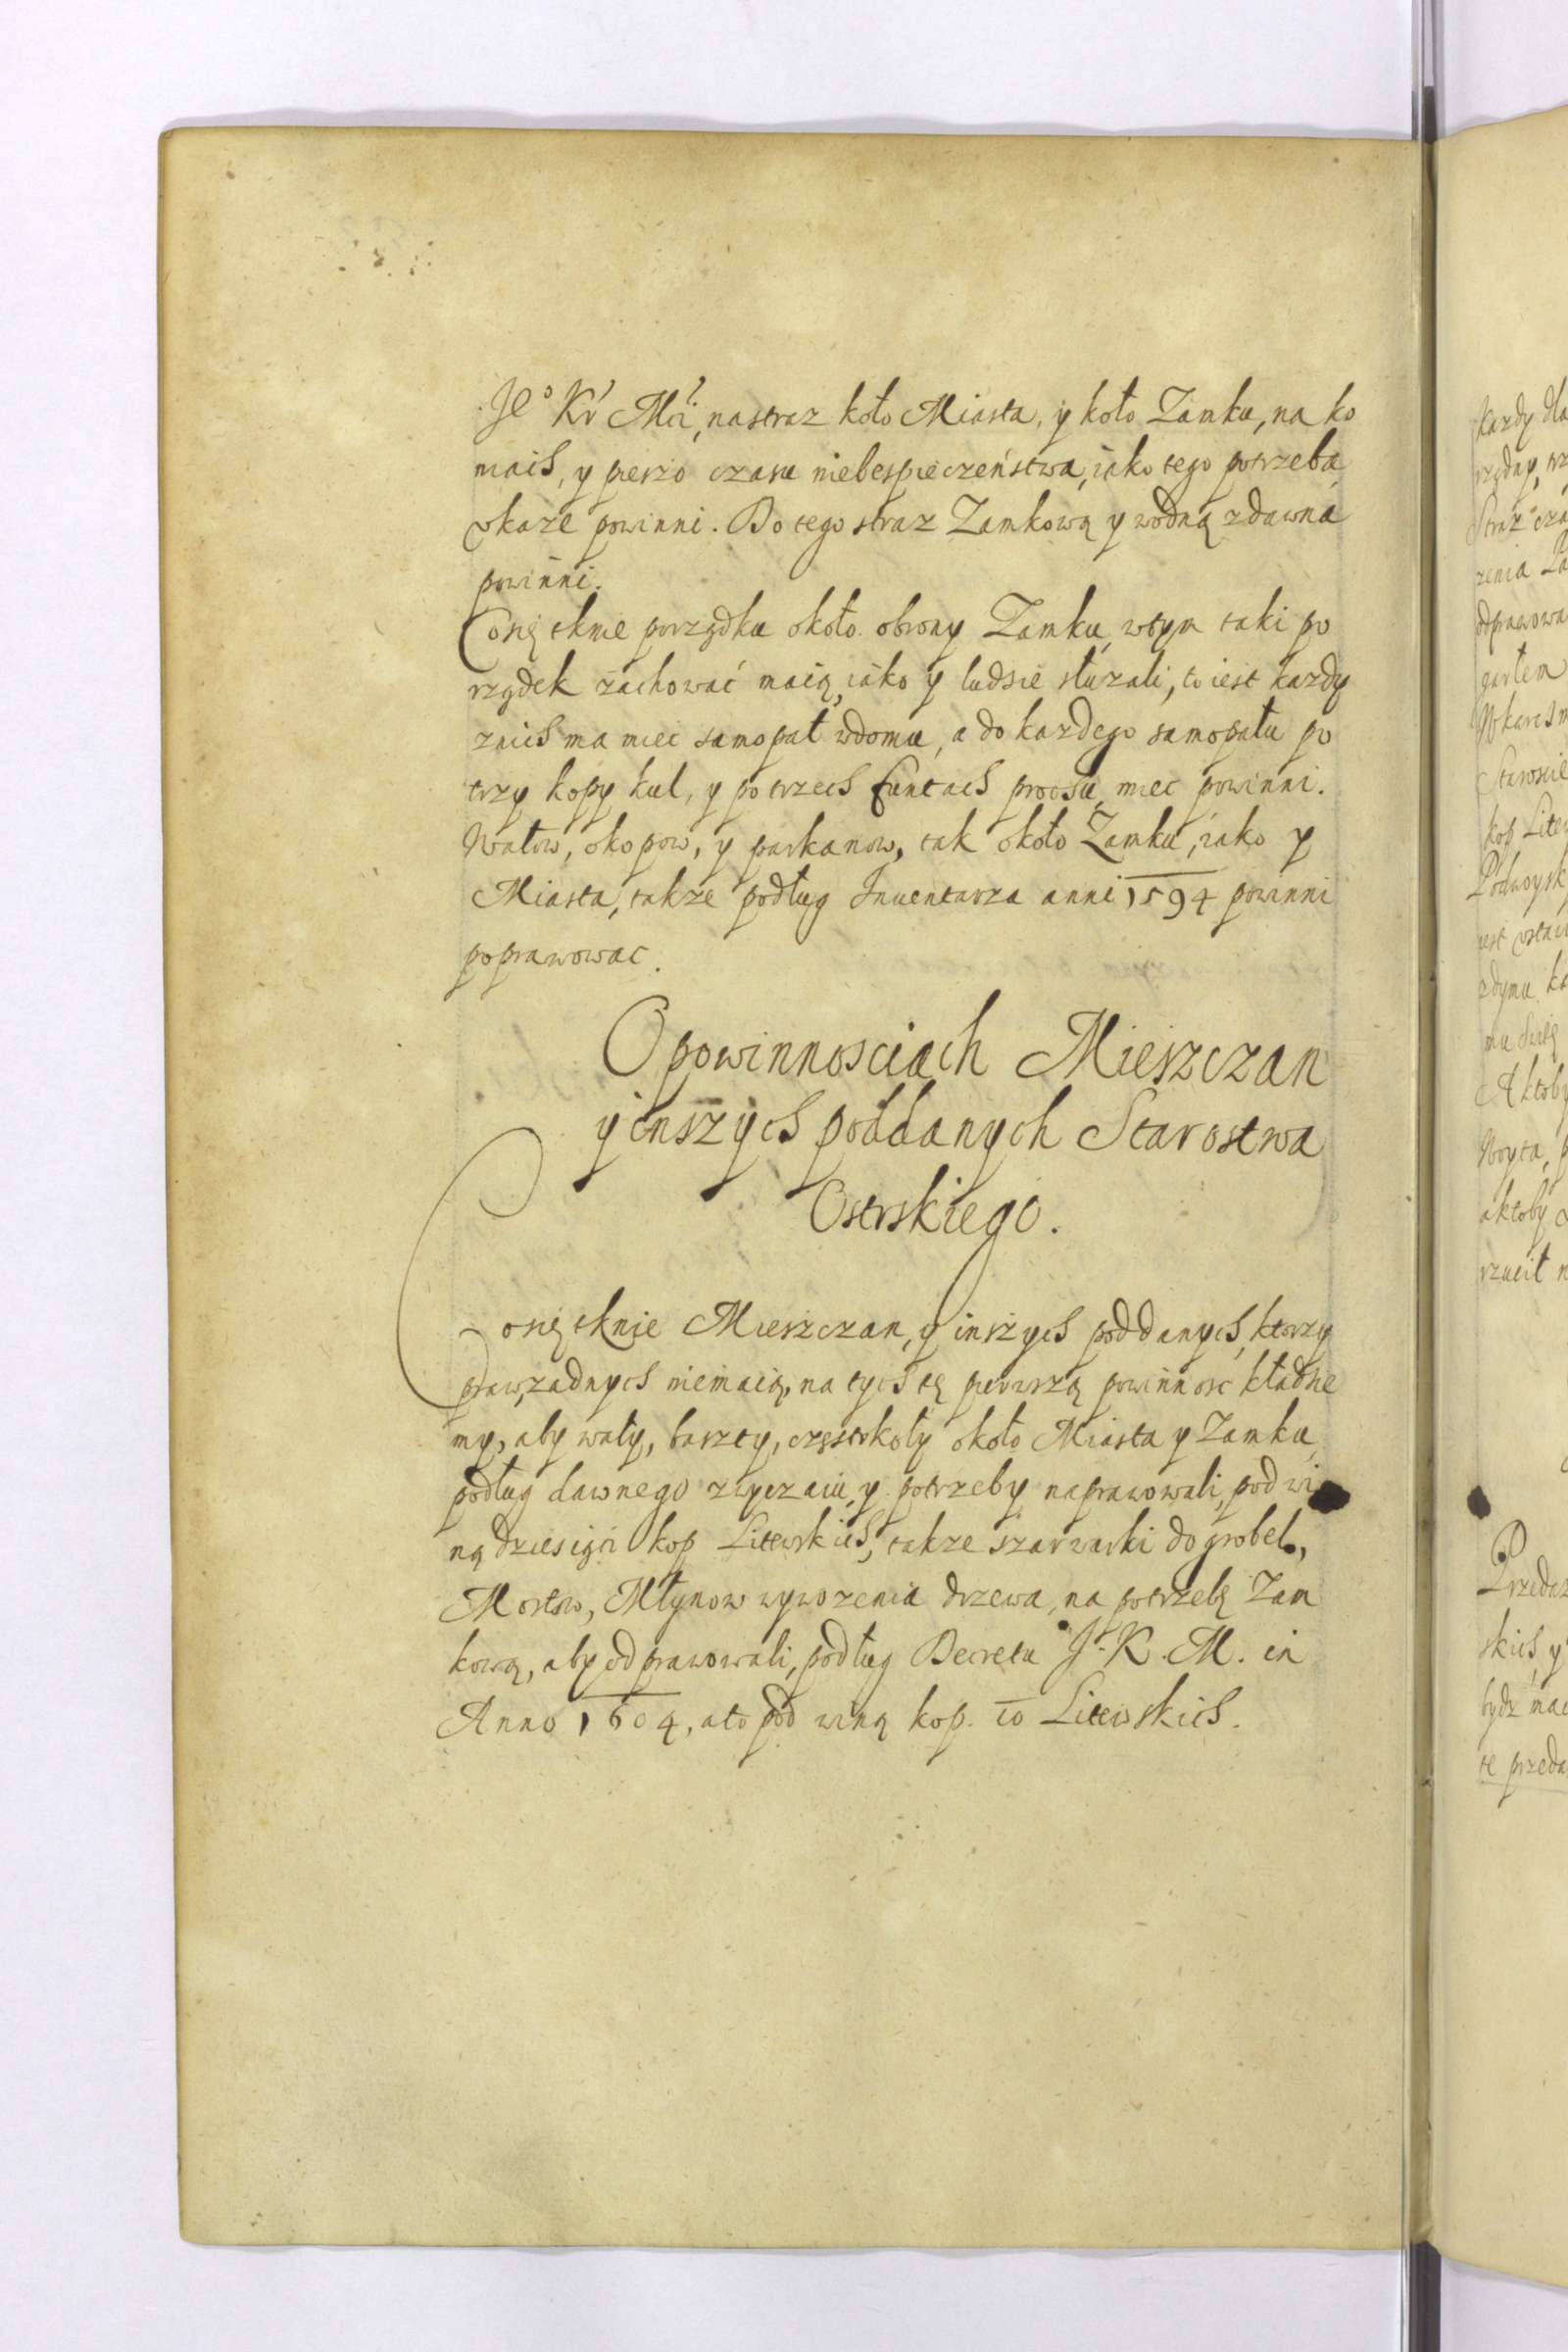 Je° Kr Mci, na straz koło Miasta, y koło Zamku, na ko
niach, y pieszo czasu niebespieczeństwa, iako tego potrzeba
vkaze powinni. Do tego straz Zamkową y wodną zdawna
powinni.
Co się tknie porządku około obrony Zamku, wtym taki po
rządek zachować maią, iako y ludzie służali, to iest kazdy
znich ma miec samopał wdomu, a do kazdego samopału po
trzy kopy kul, y po trzech funtach prochu miec powinni.
Wałow, okopow, y parkanow, tak około Zamku, iako y
Miasta, takze podług Inuentarza anni 1594 powinni
poprawowac.
O powinnosciach Mieszczan
y inszych poddanych Starostwa
Ostrskiego.
Co się tknie Mieszczan, y inszych poddanych, ktorzy
praw zadnych niemaią, na tych tę pierwszą powinność kładzie
my, aby wały, baszty, częstrkoły około Miasta y Zamku,
podług dawnego zwyczaiu, y potrzeby naprawowali, pod wi
ną dziesięci kop Litewskich, takze szarwarki do grobel,
Mostow, Młynow wywozenia drzewa, na potrzebę Zam
kową, aby odprawowali, podług Decretu J. K. M. in
Anno 1604, a to pod winą kop. 10 Litewskich.
kazdy
Straz
zenia
odprawowa
gartem
Starosc
kop Litew
Podwoysk
iest
zdymu
A ktoby
Woyta,
a ktoby
rzucił
Przeda
skich, y
bydz
te przeda